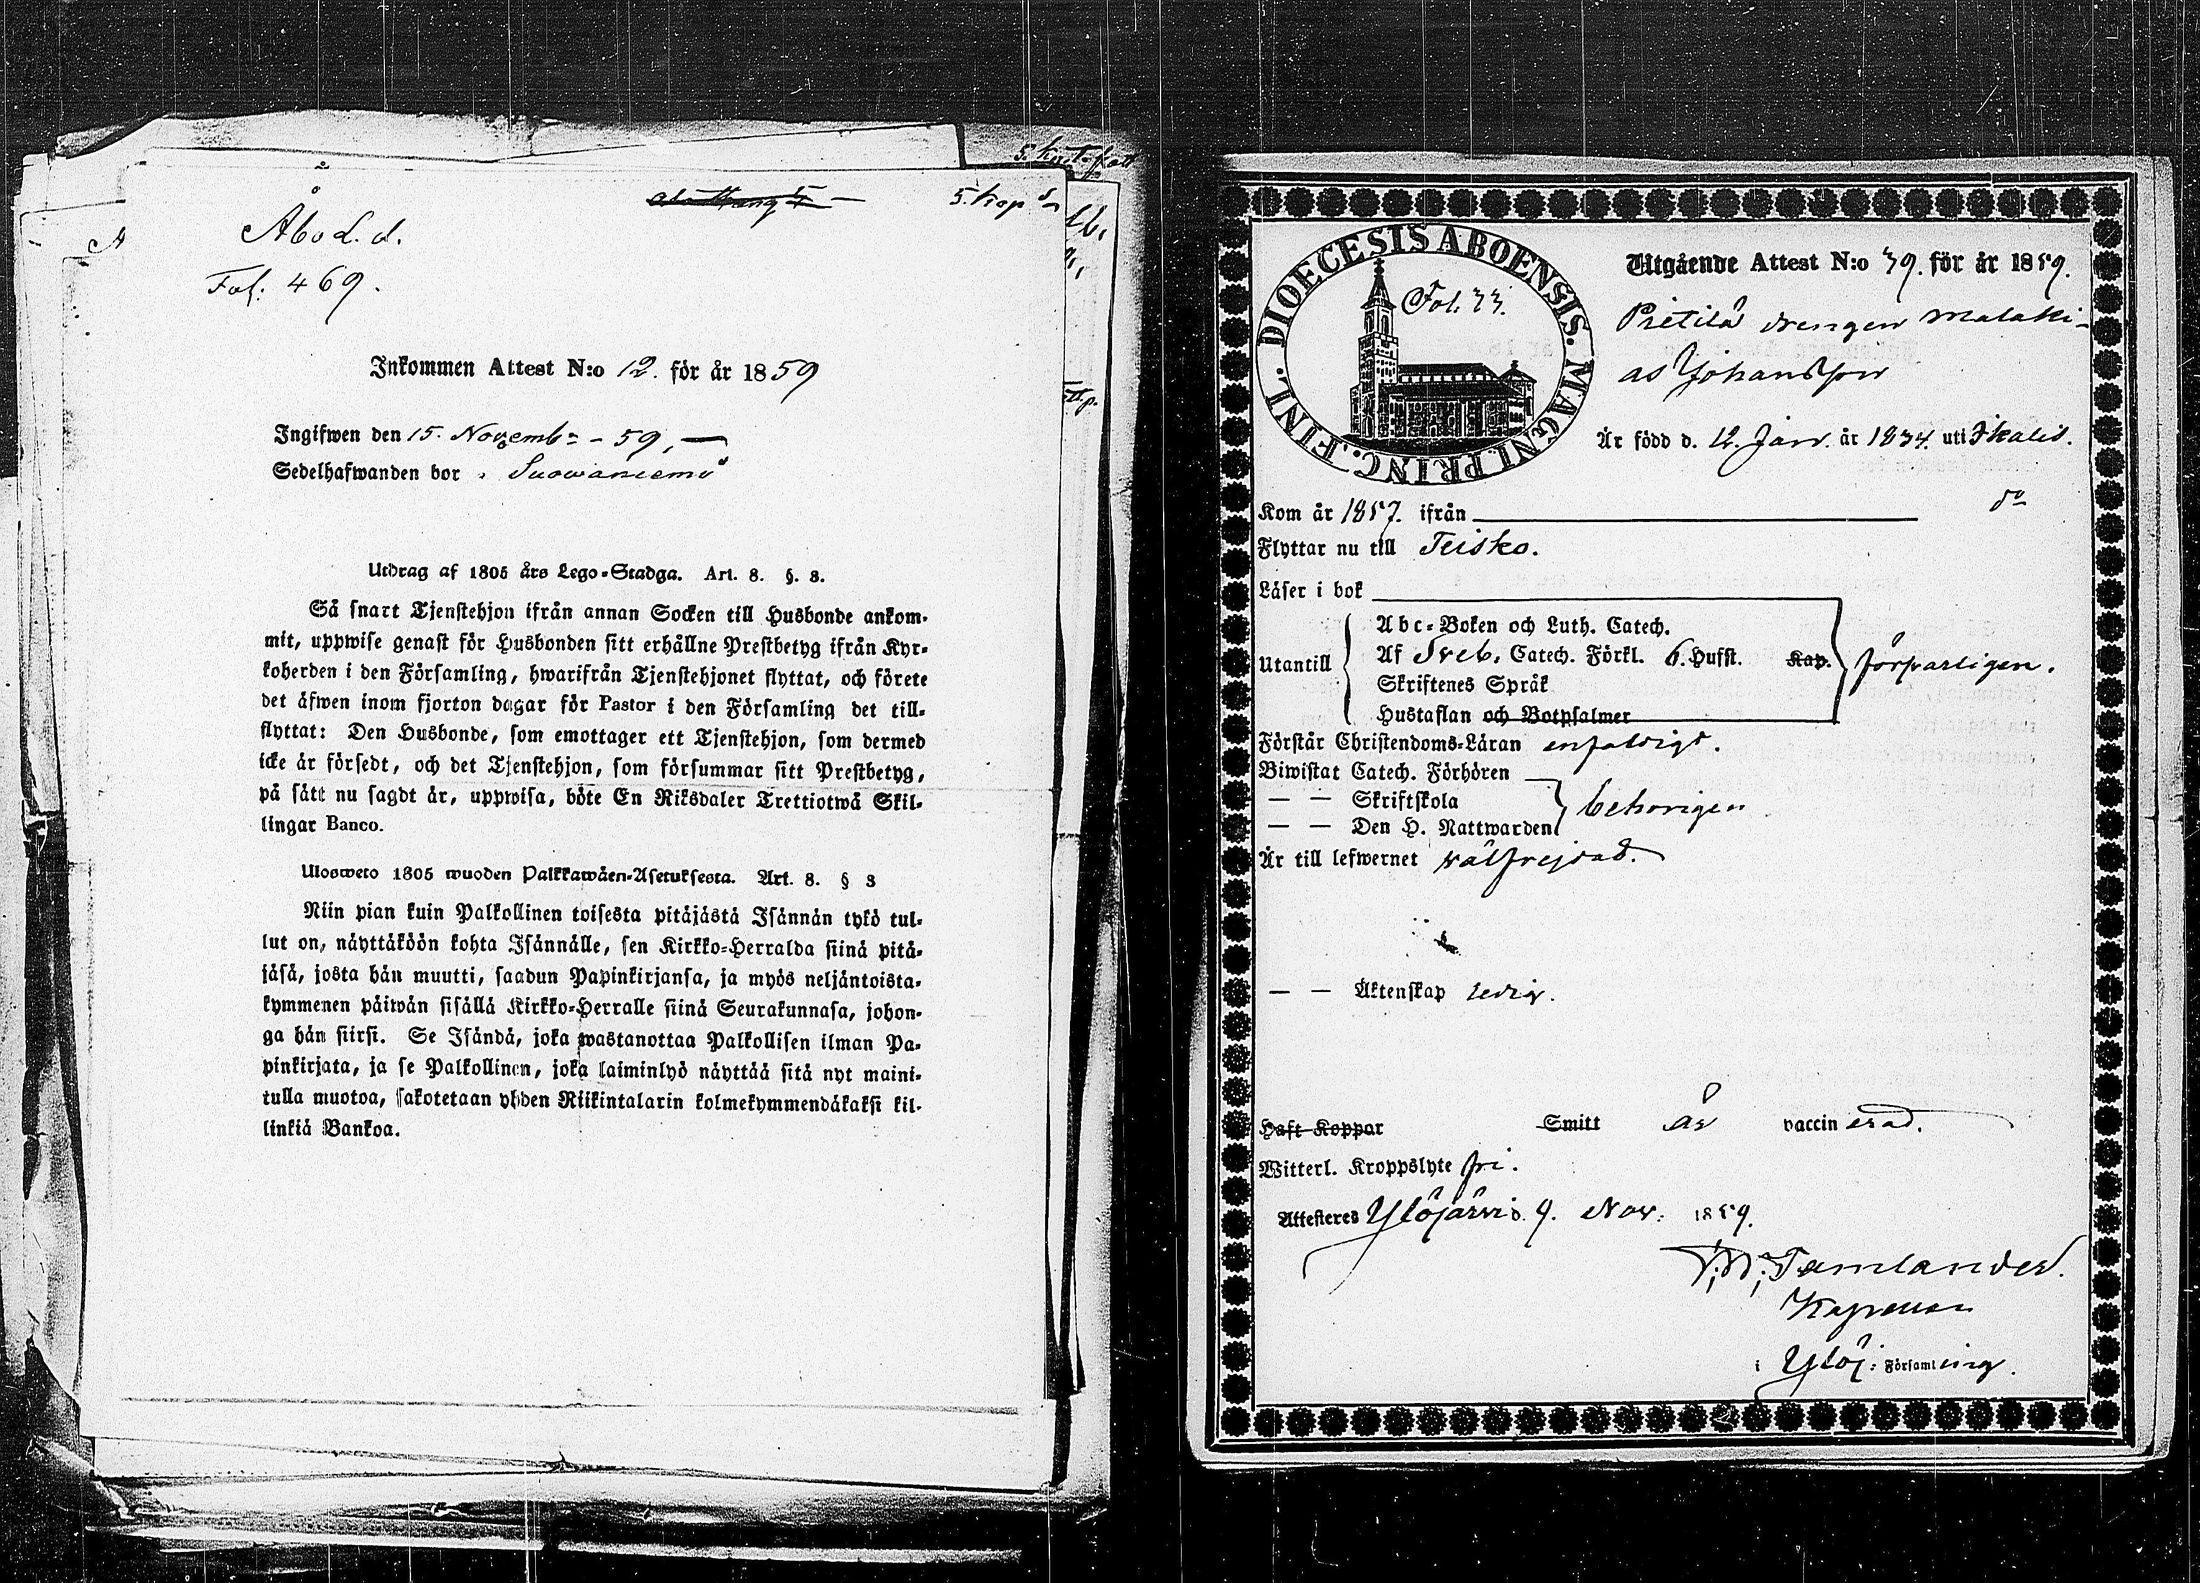 5. kop
Åbo d. d.
Fol: 469.
Inkommen Attest N:o 12. för år 1859
Ingifwen den 15. Novemb: - 59,
Sedelhafwanden bor Suowaniemi
Utdrag af 1805 års Lego-Stadga. Art. 8. §. 8.
Så snart Tjenstehjon ifrån annan Socken till Husbonde ankom-
mit, uppwise genast för Husbonden sitt erhållne Prestbetyg ifrån Kyr-
koherden i den Församling, hwarifrån Tjenstehjonet flyttat, och förete
det äfwen inom fjorton dagar för Pastor i den Församling det till-
flyttat: Den Husbonde, som emottager ett Tjenstehjon, som dermed
icke är försedt, och det Tjenstehjon, som försummar sitt Prestbetyg,
på sätt nu sagdt är, uppwisa, böte En Riksdaler Trettiotwå Skil-
lingar Banco.
Ulosweto 1805 wuoden Palkkawäen-Asetuksesta. Art. 8. § 3
Niin pian kuin Palkollinen toisesta pitäjästä Isännän tykö tul-
lut on, näyttäköön kohta Isännälle, sen Kirkko-Herralda siinä pitä-
jäsä, josta hän muutti, saadun Papinkirjansa, ja myös neljäntoista-
kymmenen päiwän sisällä Kirkko-Herralle siinä Seurakunnasa, johon-
ga hän siirsi. Se Isändä, joka wastanottaa Palkollisen ilman Pa-
pinkirjata, ja se Palkollinen, joka laiminlyö näyttää sitä nyt maini-
tulla muotoa, sakotetaan yhden Riikintalarin kolmekymmendäkaksi kil-
linkiä Bankoa.
DIOECESIS ABOENSIS. MAGNI. PRINC. FINL.
Fol. 33.
Utgående Attest N:o 39. för år 1859.
Pietilä drengen Malaki-
as Johansson
Är född d. 12. Jan. år 1834. uti Ikalis.
Kom år 1857. ifrån do
Flyttar nu till Teisko.
Läser i bok
Abc-Boken och Luth. Catech.
Utantill Af Sveb. Catech. Förkl. 6. Hufst. Kap. försvarligen.
Skriftenes Språk
Hustaflan och Botpsalmer
Förstår Christendoms-Läran enfaldigt.
Biwistat Catech. Förhören
— — Skriftskola behörigen
— — Den H. Nattwarden
Är till lefwernet välfrejdad.
— — Äktenskap ledig.
Haft Koppar Smitt är vaccinerad.
Witterl. Kroppslyte fri.
Attesteras Ylöjärvi d. 9. Nov. 1859.
Tamlander.
Kapellan
i Ylöj: Församling.